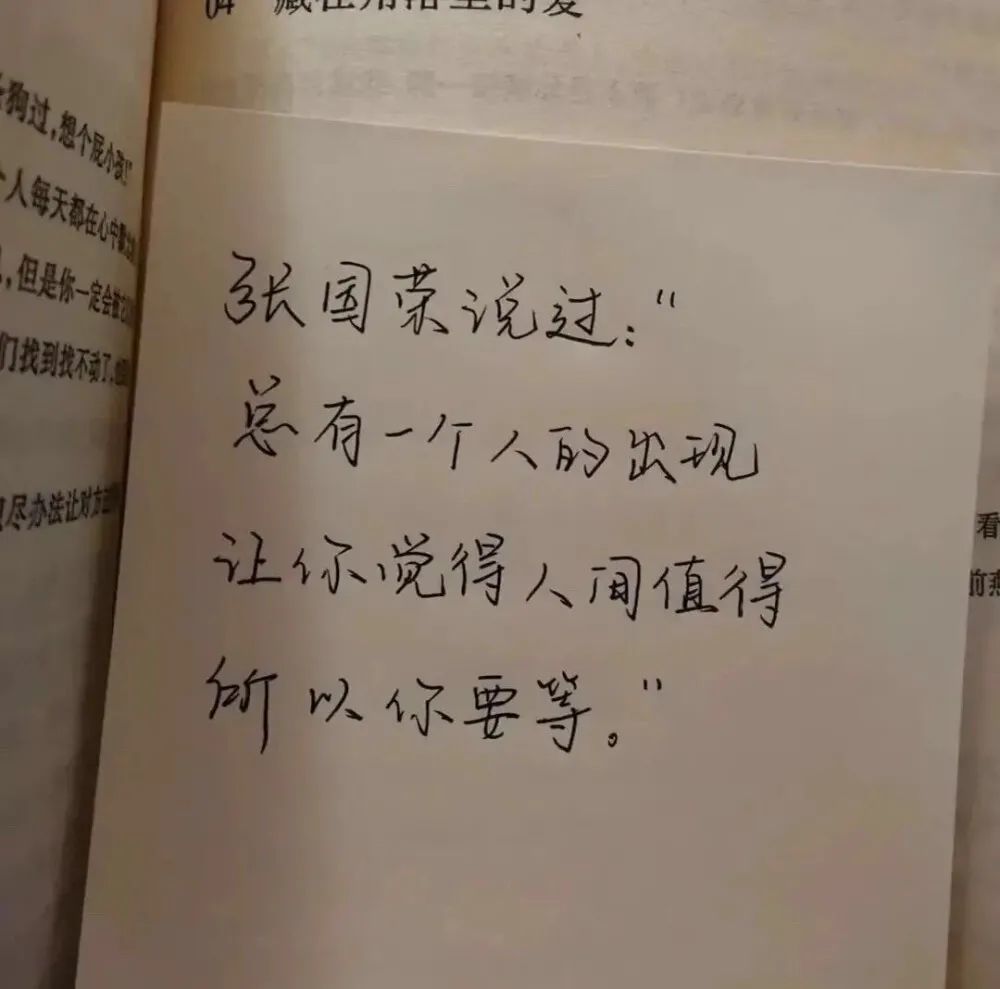 04 藏在角落里的爱
狗过,想个屁小孩!"
人每天都在心中
,但是你一定会被它
们找到找不动了,
尽办法让对方
张国荣说过:"
总有一个人的出现
让你觉得人间值得
所以你要等。"
看
前